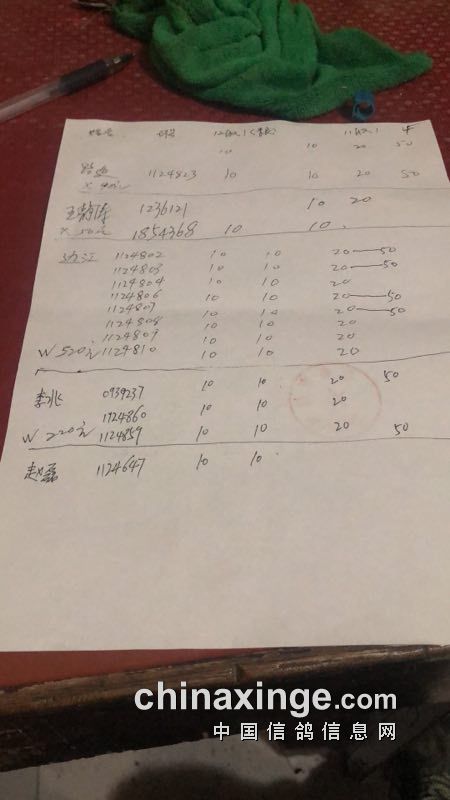 姓名
10 10 20 50
1124823 10 10 20 50
1236121 10 20
1854368 10 10
1124802 10 10 20—50
1124803 10 10 20—50
1124804 10 10 20
1124806 10 10 20—50
1124807 10 10 20—50
1124808 10 10 20
1124809 10 10 20
W 520元 1124810 10 10 20
0939237 10 10 20 50
1124860 10 10 20
W 220元 1124859 10 10 20 50
赵磊 1124647 10 10
chinaxinge.com
中国信鸽信息网